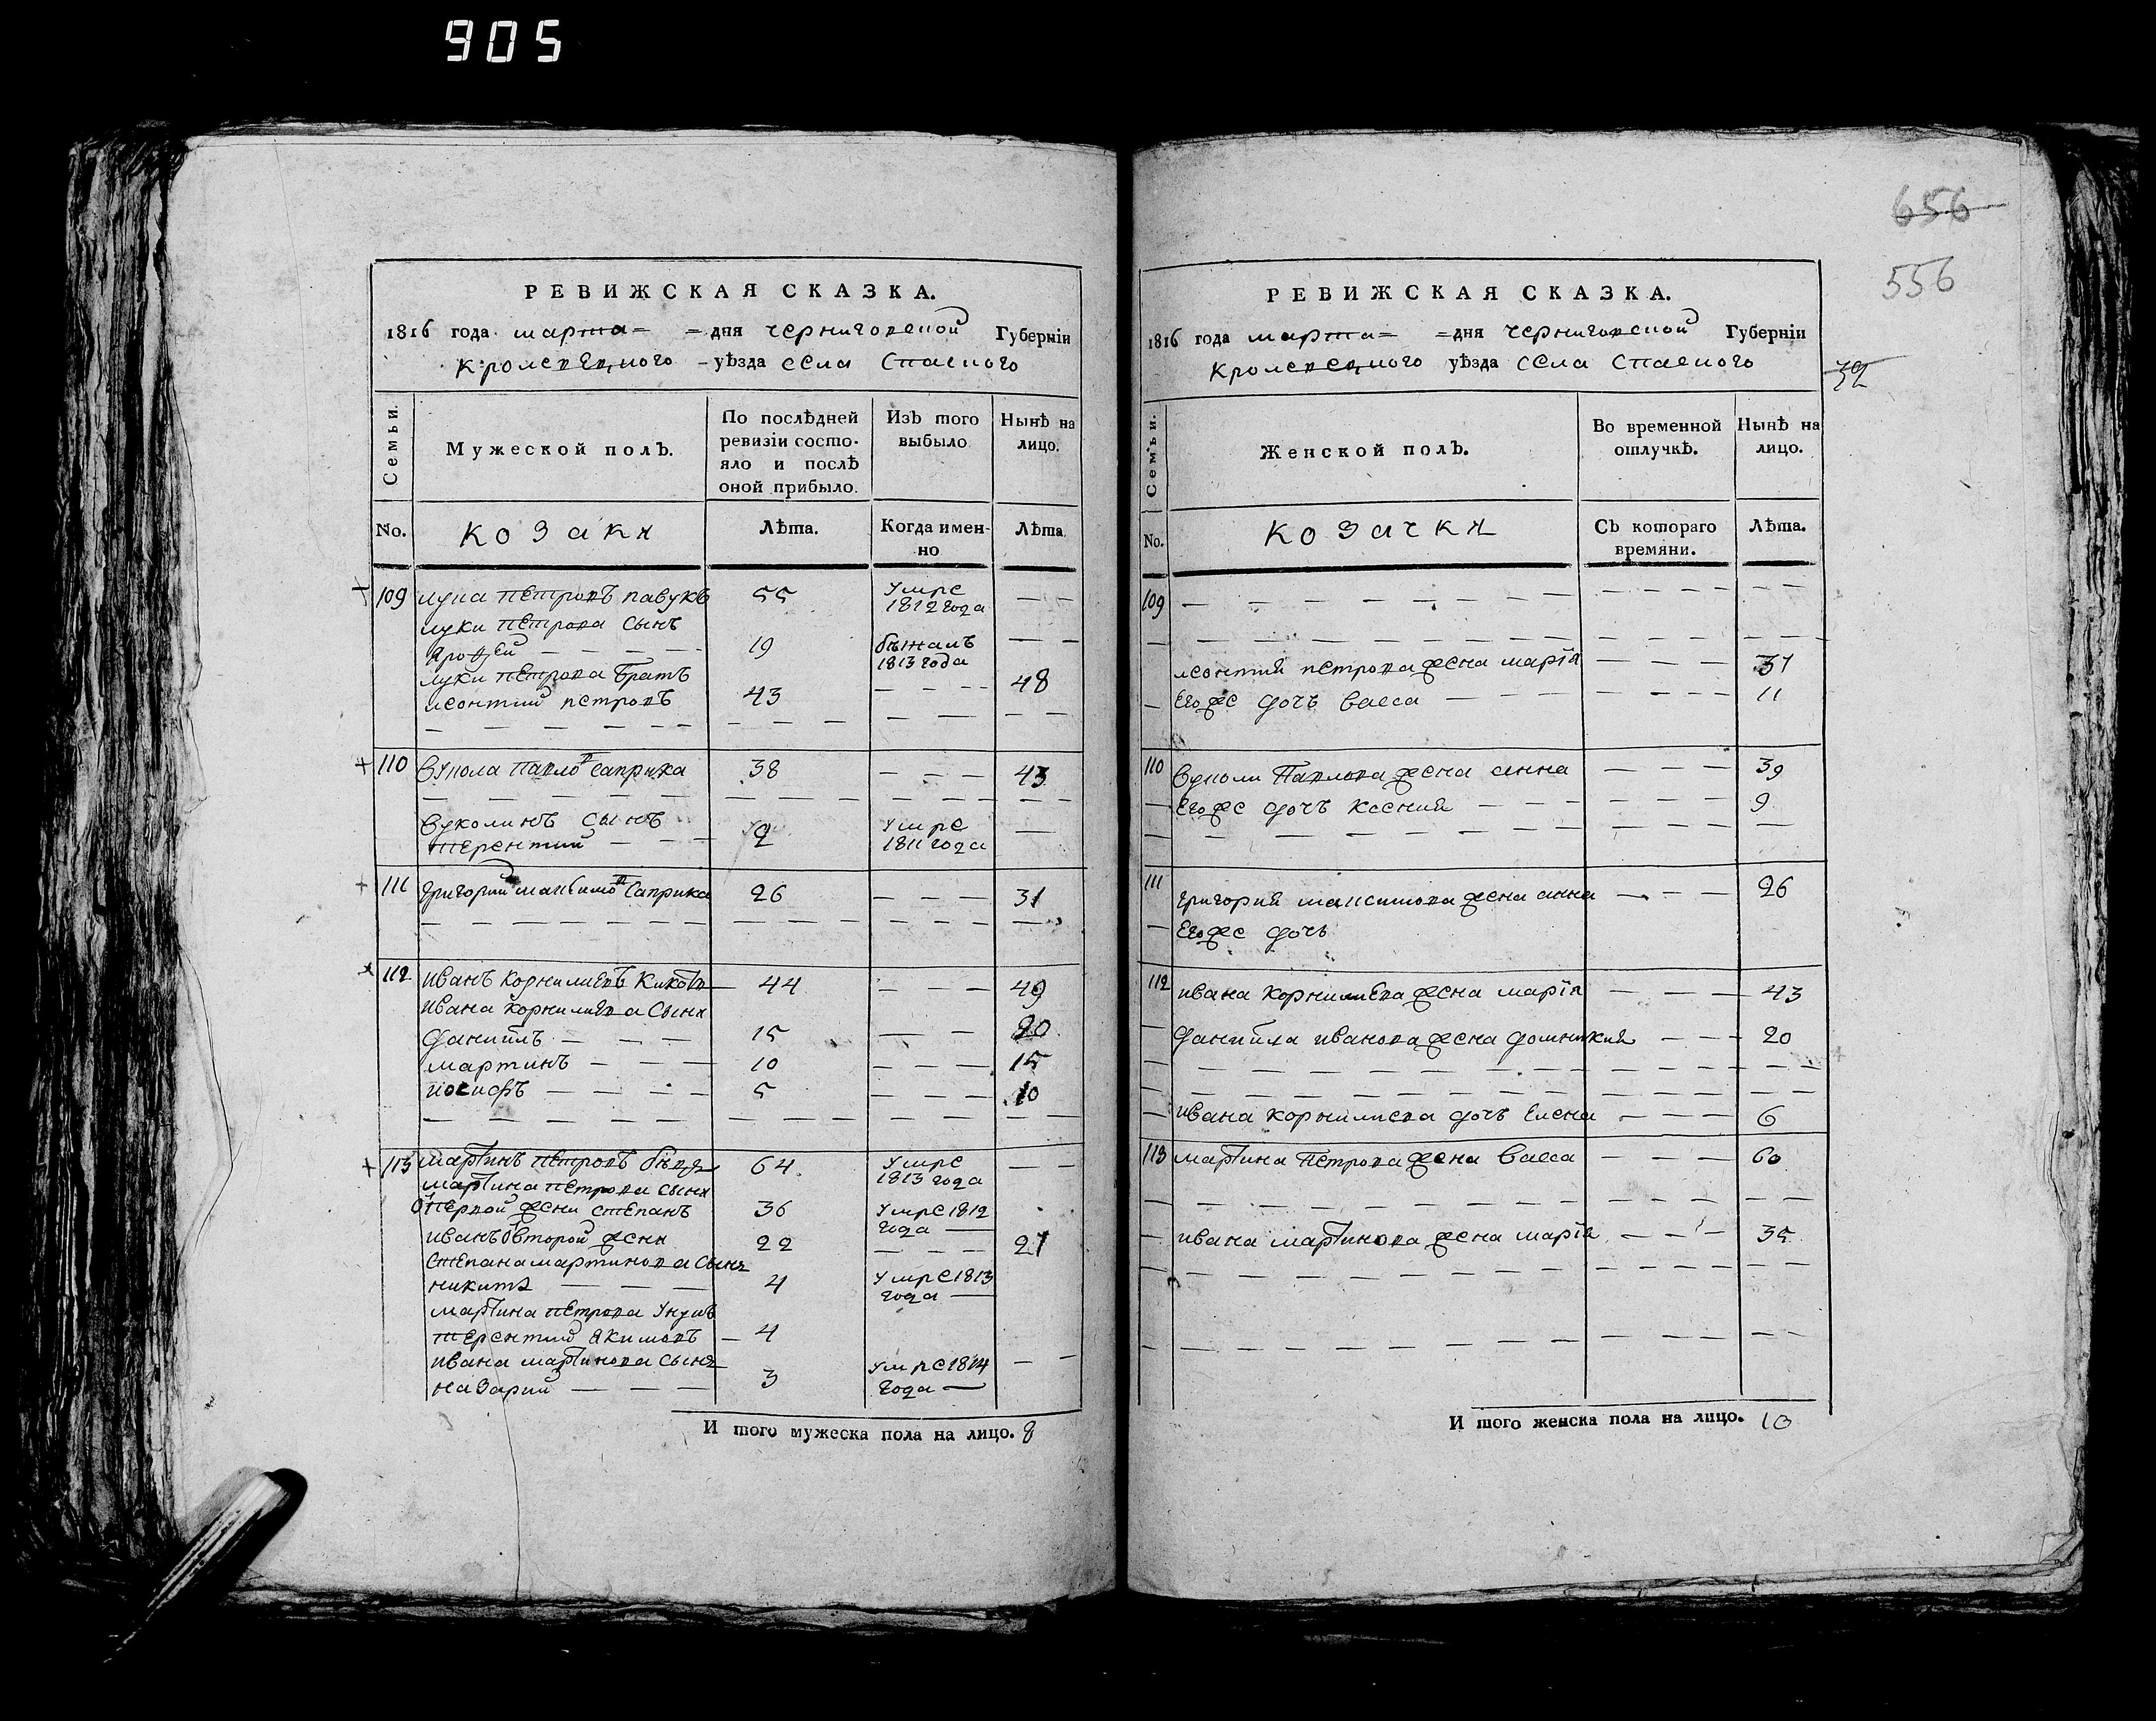 905
656
556
РЕВИЖСКАЯ СКАЗКА.
1816 года марта = = дня черниговской Губерніи
Кролевецкого - уѣзда села Спаского
Семьи.
Мужеской полъ.
По послѣдней ревизіи состо-
яло и послѣ
оной прибыло.
Изъ того выбыло
Нынѣ на лицо.
No. козаки Лѣта. Когда имен-
но Лѣта
109 лука петровъ павукъ 55 умре 1812 года — —
луки петрова сынъ
— — — — 19 бѣжалъ 1813 года — —
луки петрова братъ
леонтий петровъ 43 — — — 48
110 вукола павловъ саприка 38 — — — 43
вуколинъ сынъ
терентий — — — 2 умре 1811 года —
111 григорий максимовъ саприка 26 — — — 31
112 иванъ корнилиевъ кикоть 44 — — — 49
ивана корнилиева сыни
даниилъ — — — 15 — — 20
мартинъ — — — 10 — — — 15
иосифъ — — — — 5 — — — 10
113 мартинъ петровъ 64 умре 1813 года — —
мартина петрова сыни
отпервой жени степанъ 36 умре 1812 года —
иванъ отвторой жени 22 — — — 27
степана мартинова сынъ
никита — — 4 умре 1813 года —
мартина петрова унукъ
терентий якимовъ — 4
ивана мартинова сынъ
назарий — — — 3 умре 1814 года — — —
И того мужеска пола на лицо. 8
РЕВИЖСКАЯ СКАЗКА.
1816 года марта = = дня черниговской Губерніи
Кролевецкого уѣзда села Спаского
Семьи.
Женской полъ.
Во временной отлучкѣ.
Нынѣ на лицо.
No. козачки Съ котораго
времяни. Лѣта.
109 — — — — — — —
леонтия петрова жена марія — — — 37
Егоже дочъ васса — — — 11
110 вуколи павлова жена анна — — — 39
Егоже дочъ ксения — — — 9
111 григория максимова жена анна — — — 26
Егоже дочъ
112 ивана корнилиева жена марія — — — 43
даниила иванова жена домникия — — — 20
ивана корнилиева дочъ елена — — — 6
113 мартина петрова жена васса — — — 60
ивана мартинова жена марія — — — 35
И того женска пола на лицо. 10